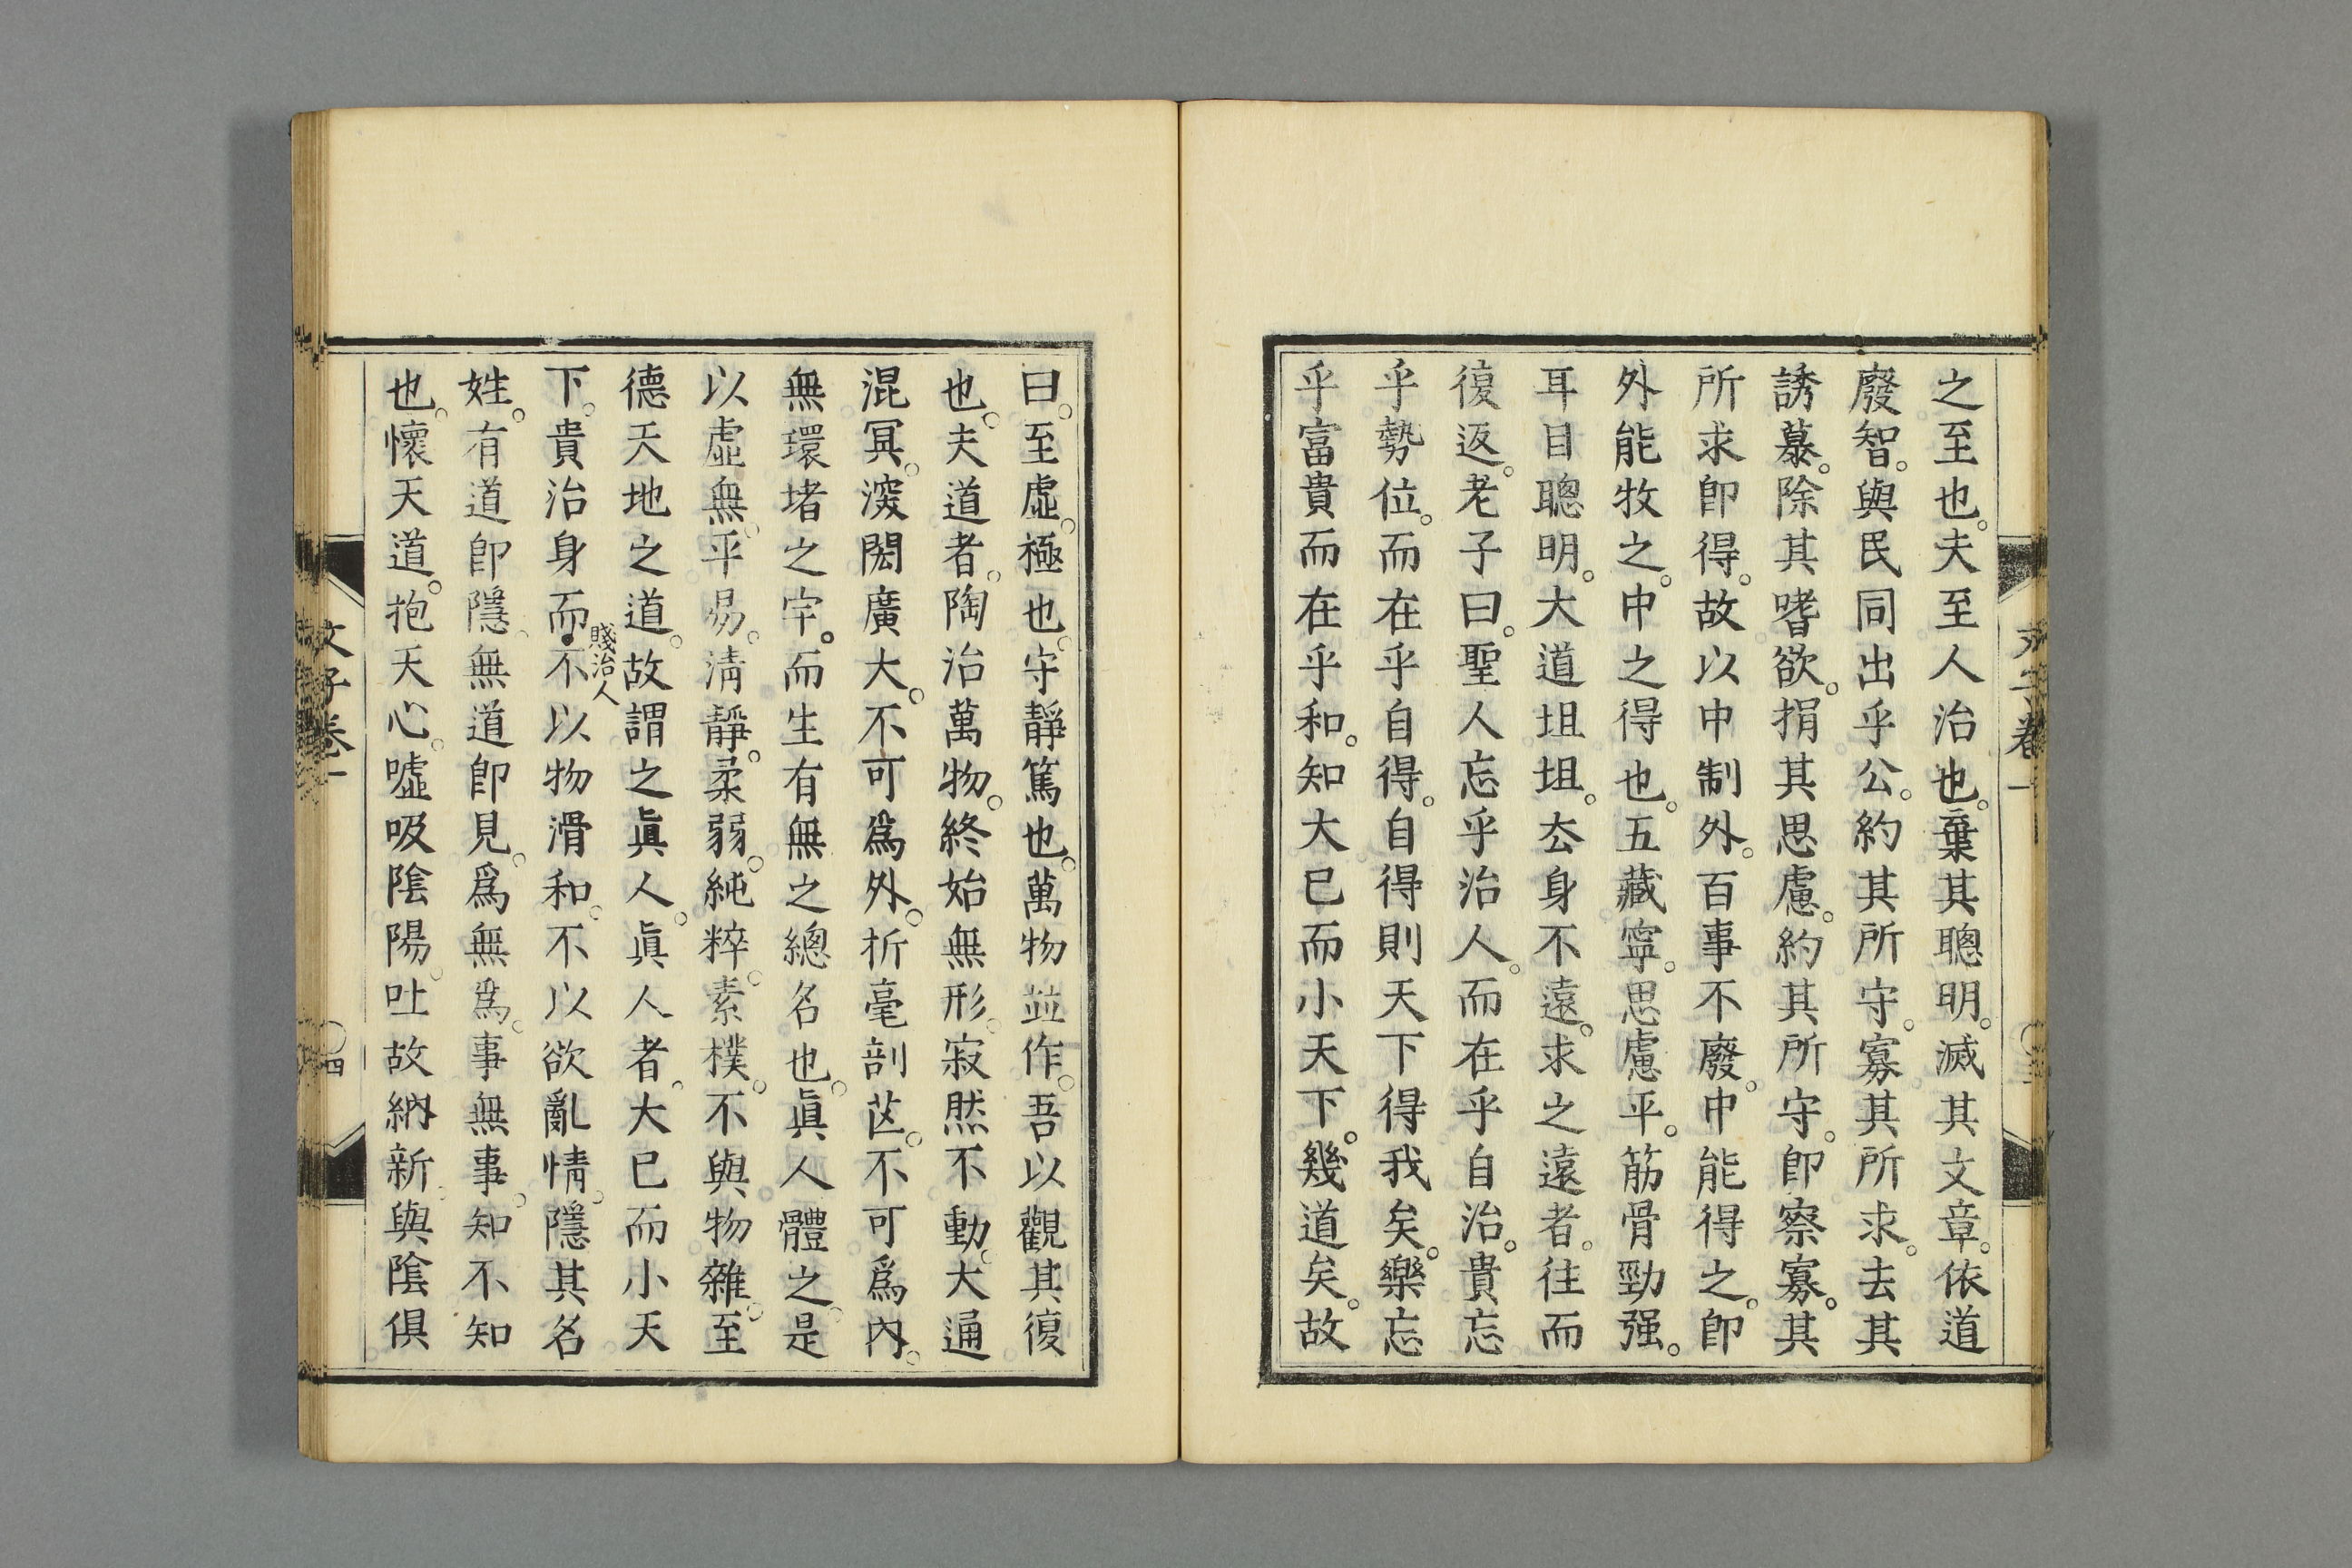 之至也。夫至人治也。棄其聰明。滅其文章。依道
廢智。與民同出乎公。約其所守。寡其所求。去其
誘慕。除其嗜欲。捐其思慮。約其所守。卽察寡。其
所求卽得。故以中制外。百事不廢。中能得之。卽
外能牧之。中之得也。五藏寧。思慮平。筋骨勁强。
耳目聰明。大道坦坦。厺身不遠。求之遠者。往而
復返。老子曰。聖人忘乎治人。而在乎自治。貴忘
乎勢位。而在乎自得。自得則天下得我矣。樂忘
乎富貴而在乎和。知大巳而小天下。幾道矣。故
曰。至虛。極也。守靜篤也。萬物並作。吾以觀其復
也。夫道者。陶治萬物。終始無形。寂然不動。大通
混冥。深閎廣大。不可爲外。折毫剖芒。不可爲內。
無環堵之宇。而生有無之總名也。眞人體之。是
以虛無。平易。淸靜。柔弱。純粹。素樸。不與物雜。至
德天地之道。故謂之眞人。眞人者。大巳而小天
下。貴治身而不以物滑和。不以欲亂情。隱其名
賤治人
姓。有道卽隱。無道卽見。爲無爲。事無事。知不知
也。懷天道。抱天心。噓吸陰陽。吐故納新。與陰俱
文子卷一
四